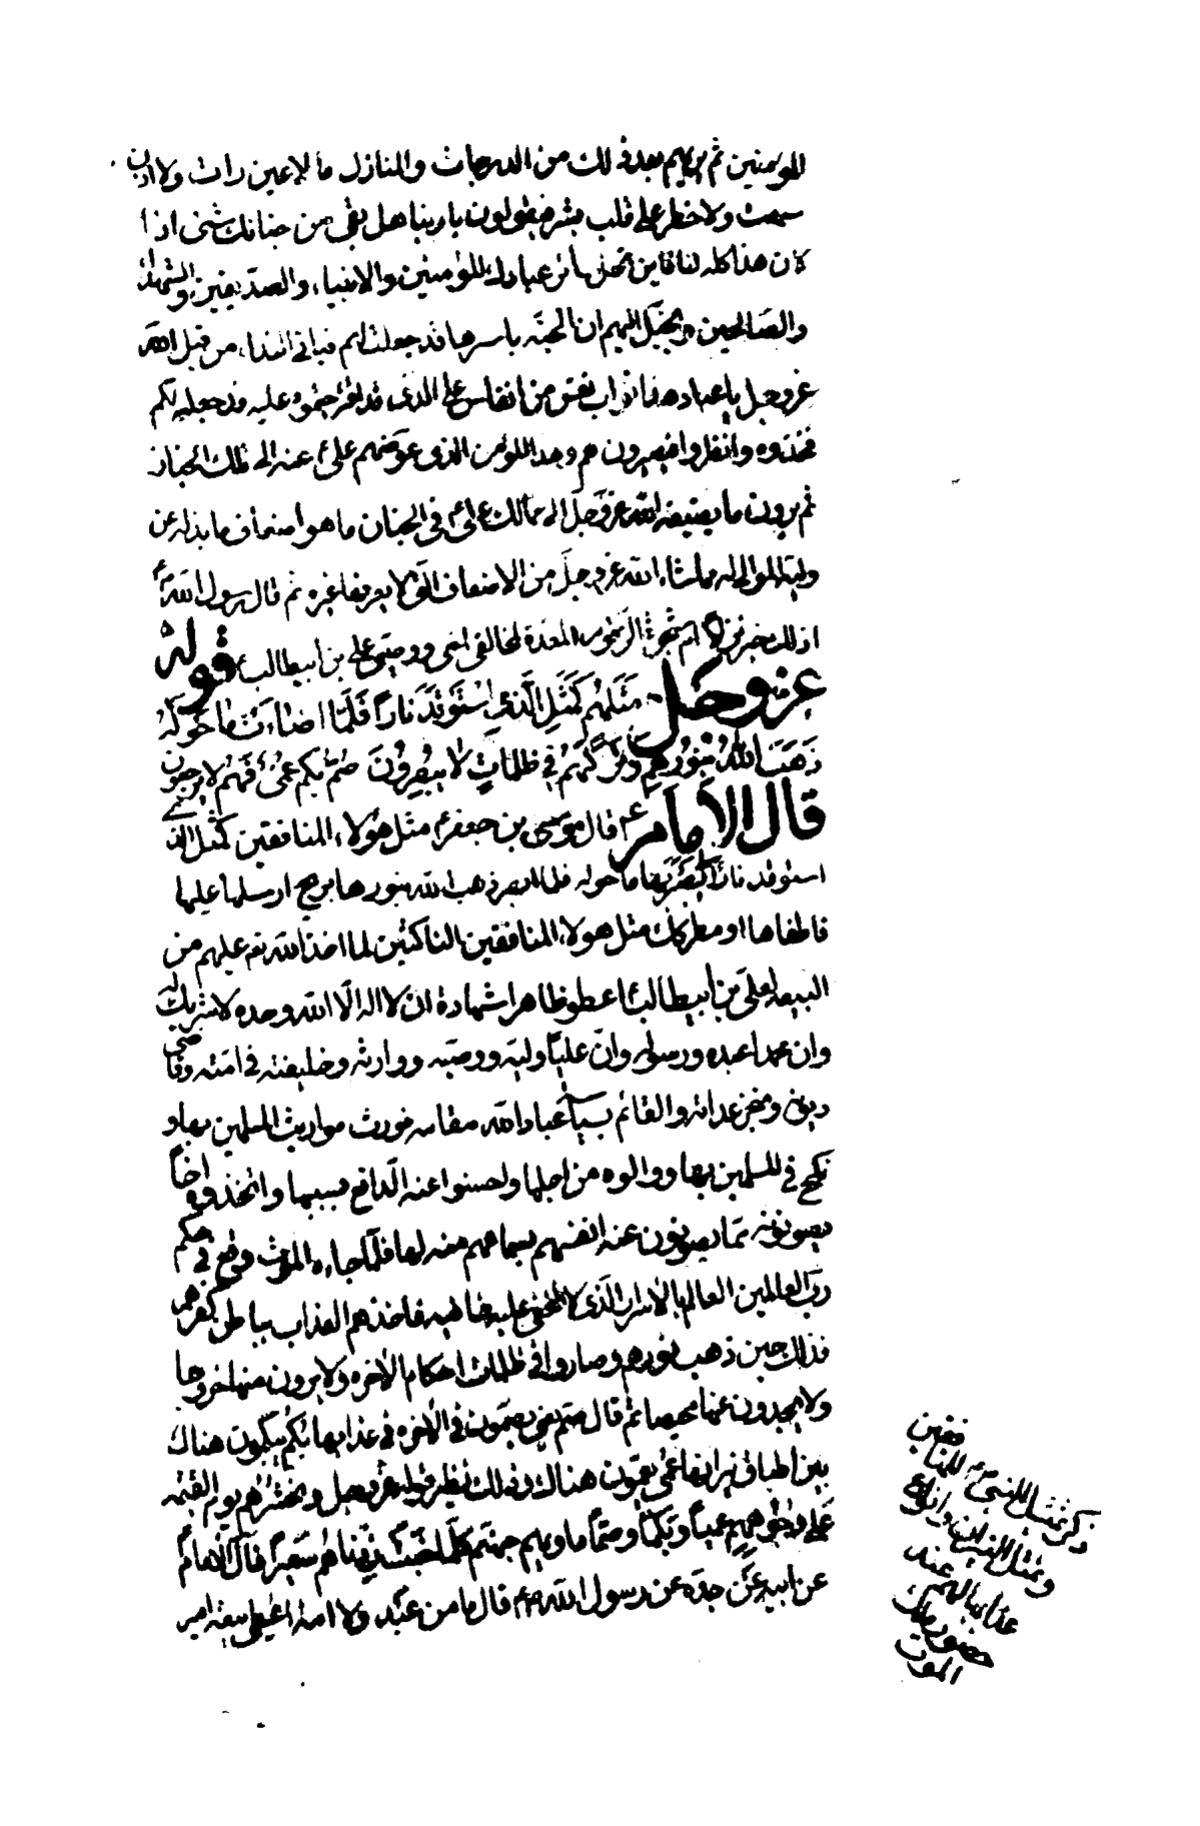 للمؤمنين ثم يريهم بعد ذلك من الدرجات والمنازل ما لا عين رات ولا اذن
سمعت ولا خطر على قلب بشر فيقولون يا ربنا هل بقى من جنانك شئ اذا
كان هذا كله لنا فاين تحل سائر عبادك المؤمنين والانبياء والصديقين والشهداء
والصالحين ويخيل اليهم ان الجنة باسرها قد جعلت لهم فياتى النداء من قبل الله
عز وجل يا عبادى هذا ثواب نفس من انفاس على الذى قد اقترحتموه عليه قد جعله لكم
فخذوه وانظروا فيصيرون هم وهذا المؤمن الذى عوضهم على ع عنه الى تلك الجنان
ثم يرون ما يضيفه الله عز وجل الى ممالك على ع فى الجنان ما هو اضعاف ما بذله عن
وليه الموالى له مما شاء الله عز وجل من الاضعاف التى لا يعرفها غيره ثم قال رسول الله ص
اذلك خير نزلا ام شجرة الزقوم المعدة لمخالفى اخى ووصيى على بن ابيطالب ع قوله
عز وجل مَثَلُهُم كَمَثَلِ الَّذِى اسْتَوْقَدَ نَاراً فَلَمّا اضاءَت ما حَولَهُ
ذَهَبَ اللهُ بِنُورِهِم وَتَرَكَهُم فِى ظلماتٍ لا يبصِرُونَ صُمٌّ بكم عُمْىٌ فَهُم لا يرجعون
قال الامام ع قال موسى بن جعفر ع مثل هؤلاء المنافقين كمثل الذى
استوقد نارا ابصر بها ما حوله فلما ابصر ذهب الله بنورها بريح ارسلها عليها
فاطفاها او بمطر كذلك مثل هولاء المنافقين الناكثين لما اخذ الله تع عليهم من
البيعه لعلى بن ابيطالب ع اعطوا ظاهرا شهادة ان لا اله الا الله وحده لا شريك له
وان محمدا عبده ورسوله وان علياً وليه ووصيه ووارثه وخليفته فى امته وقاضى
دينه ومنجز عداته والقائم بسياسة عباد الله مقامه فورث مواريث المسلمين بها و
نكح فى المسلمين بها ووالوه من اجلها واحسنوا عنه الدافع بسببها واتخذوه اخاً
يصونونه مما يصونون عنه انفسهم بسماعهم منه لها فلما جاءه الموت وقع فى حكم
رب العالمين العالم بالاسرار الذى لا تخفى عليه خافيه فاخذهم العذاب بباطن كفرهم
فذلك حين ذهب نورهم وصاروا فى ظلمات احكام الاخره ولا يرون منها خروجا
ولا يجدون عنها محيصا ثم قال صم يعنى يصمون فى الاخره فى عذابها بُكم يبكمون هناك
بين اطباق نيرانها عمى يعمون هناك وذلك نظير قوله عز وجل ونحشرهم يوم القيمة
عَلى وُجُوههِم عمياً وَبُكماً وصُمّاً ماويهم جهنّم كلّما خَبَتْ زِدْناهُم سَعيراً قال الامام ع
عن ابيه عن جده عن رسول الله ص قال ما من عبد ولا امة اعطى بيعة امير
ذكر تمثل النبى ع للمنافقين
وتمثل النيران وانواع
عذابها لهم عند
حضور ملك
الموت